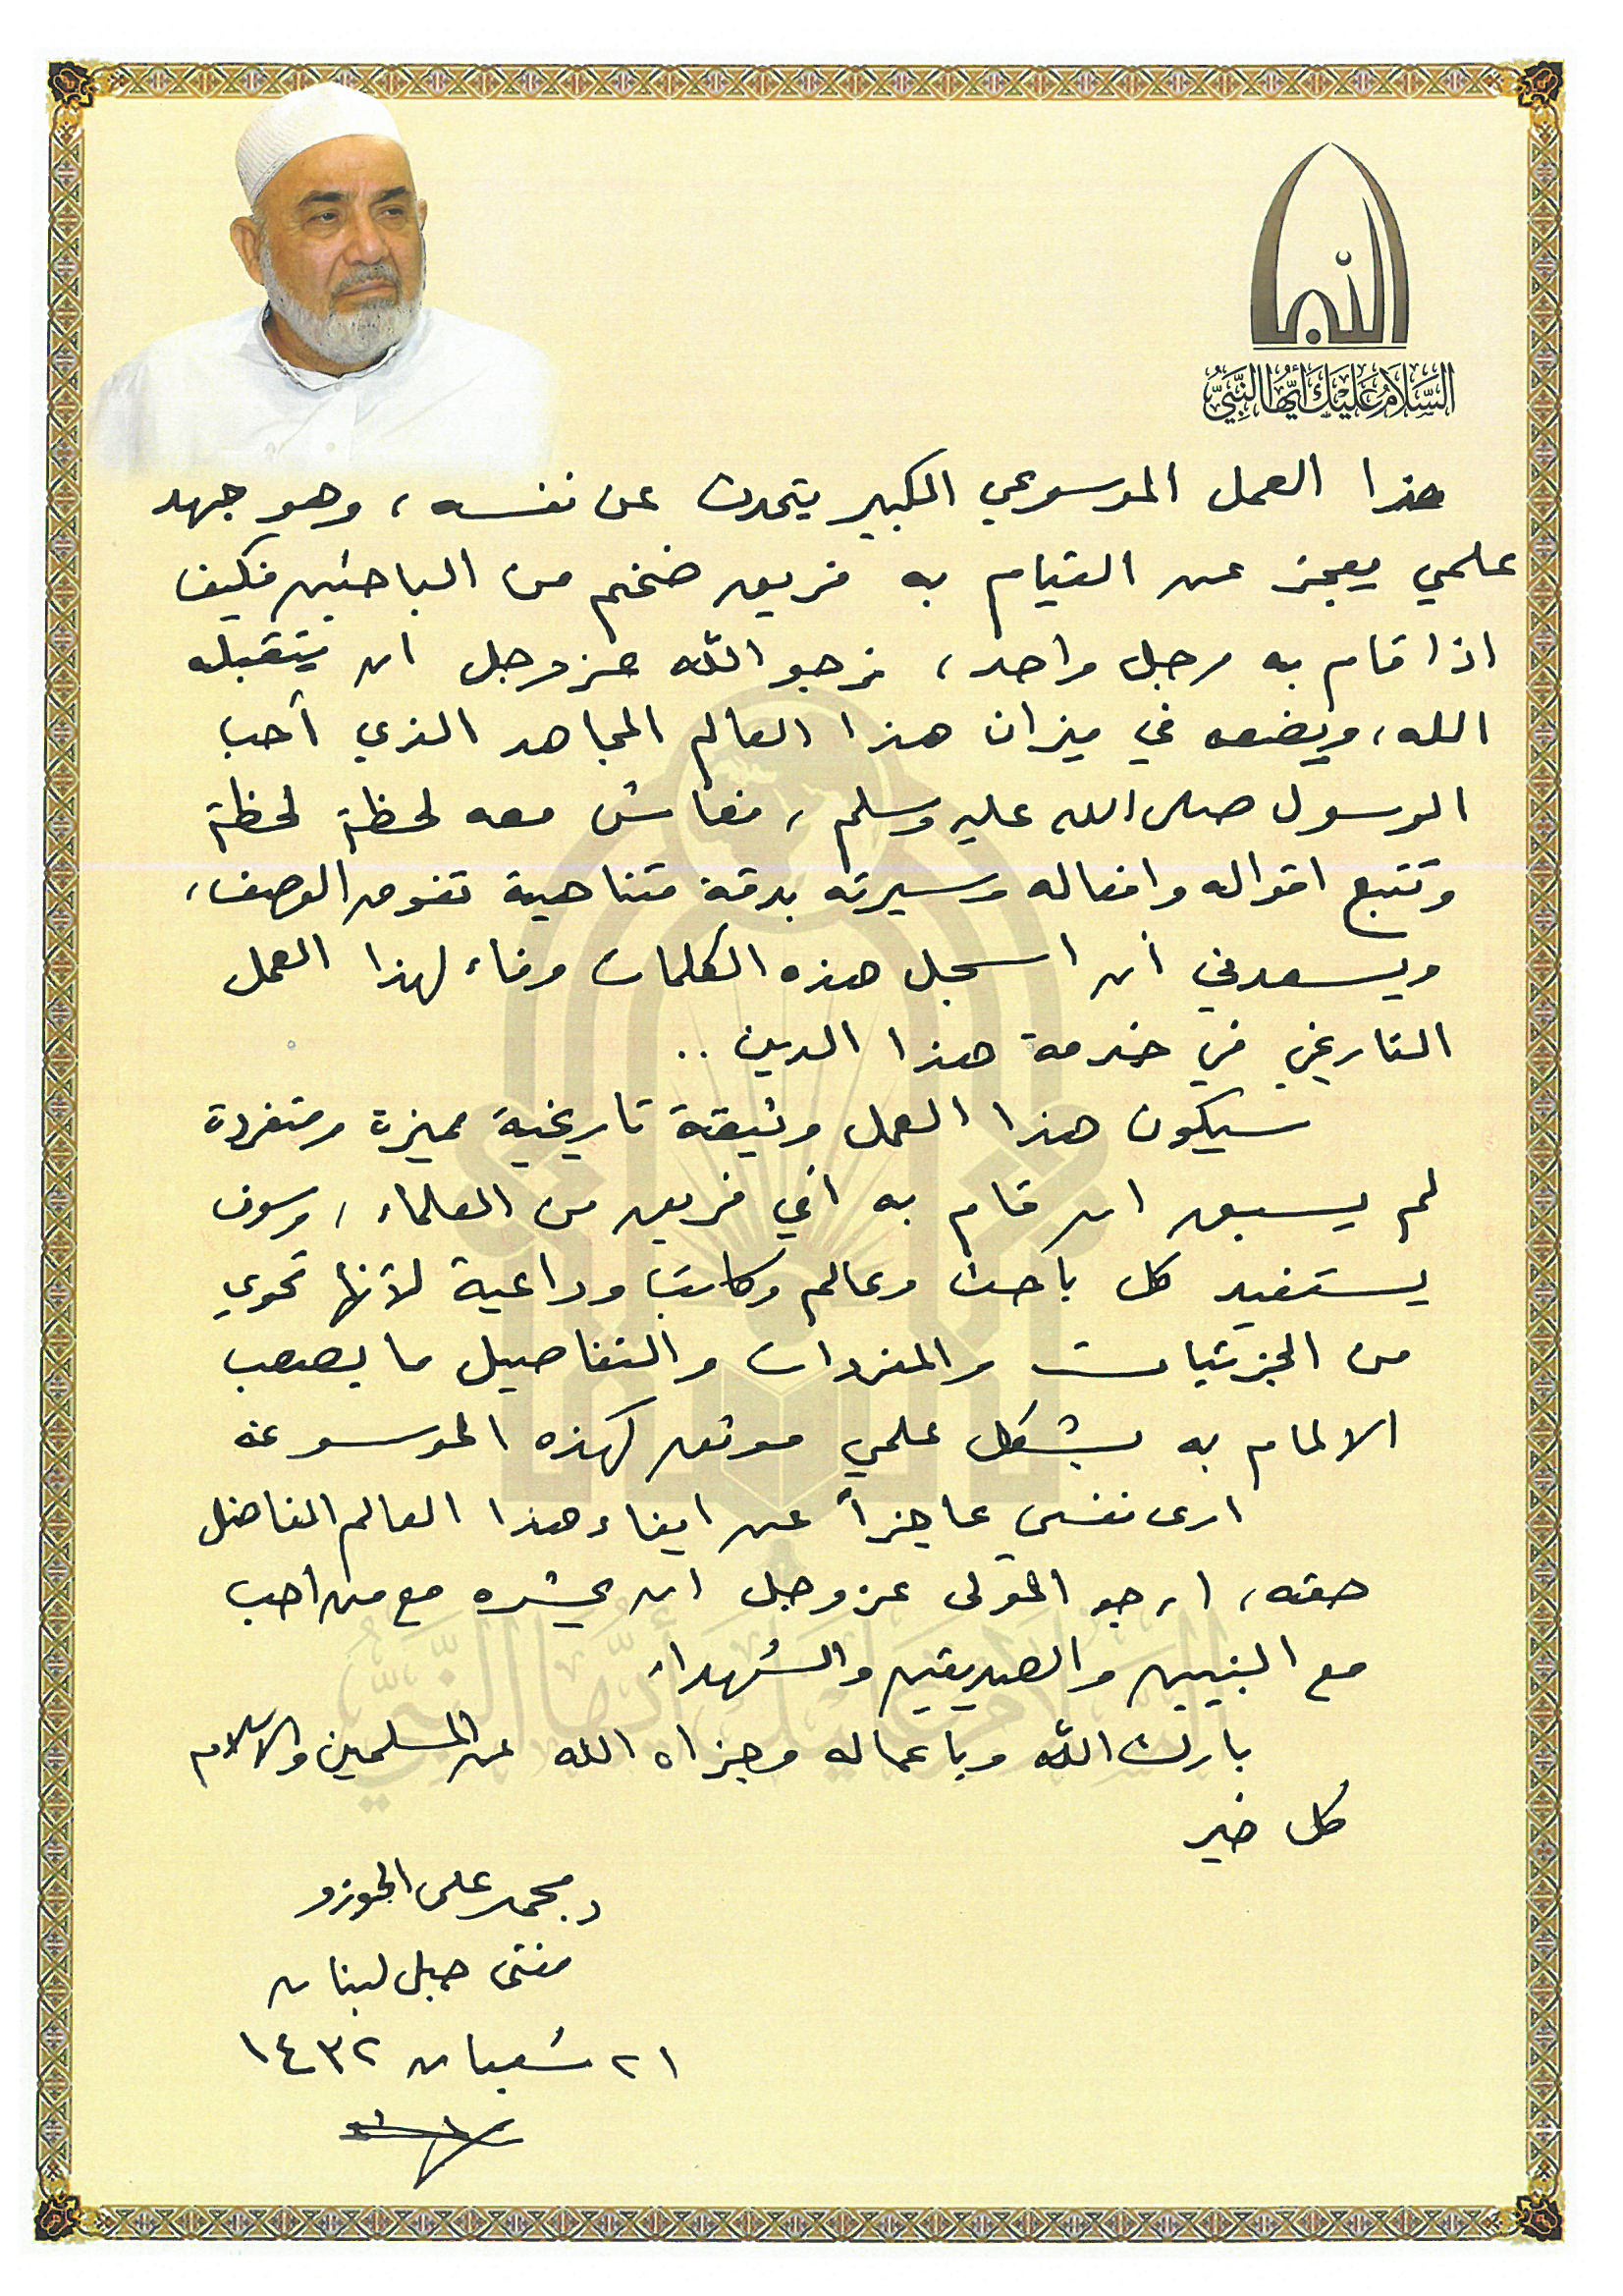 النبأ
السلام عليك أيها النبي
هذا العمل الموسوعي الكبير يتحدث عن نفسه، وهو جهد
علمي يعجز عن القيام به فريق ضخم من الباحثين فكيف
اذا قام به رجل واحد، نرجو الله عز وجل ان يتقبله
الله، ويضعه في ميزان هذا العالم المجاهد الذي أحب
الرسول صلى الله عليه وسلم، فعاش معه لحظة لحظة
وتتبع اقواله وافعاله وسيرته بدقة متناهية تفوق الوصف،
ويسعدني أن اسجل هذه الكلمات وفاء لهذا العمل
التاريخي في خدمة هذا الدين ..
سيكون هذا العمل وثيقة تاريخية مميزة ومتفردة
لم يسبق ان قام به أي فريق من العلماء، وسوف
يستفيد كل باحث وعالم وكاتب وداعية لأنها تحوي
من الجزئيات والمفردات والتفاصيل ما يصعب
الالمام به بشكل علمي موثق كهذه الموسوعة
ارى نفسي عاجزاً عن ايفاء هذا العالم الفاضل
حقه، ارجو المولى عز وجل ان يحشره مع من أحب
مع النبيين والصديقين والشهداء
بارك الله وباعماله وجزاه الله عن المسلمين والاسلام
كل خير
د. محمد علي الجوزو
مفتي جبل لبنان
٢١ شعبان ١٤٣٢
السلام عليك أيها النبي